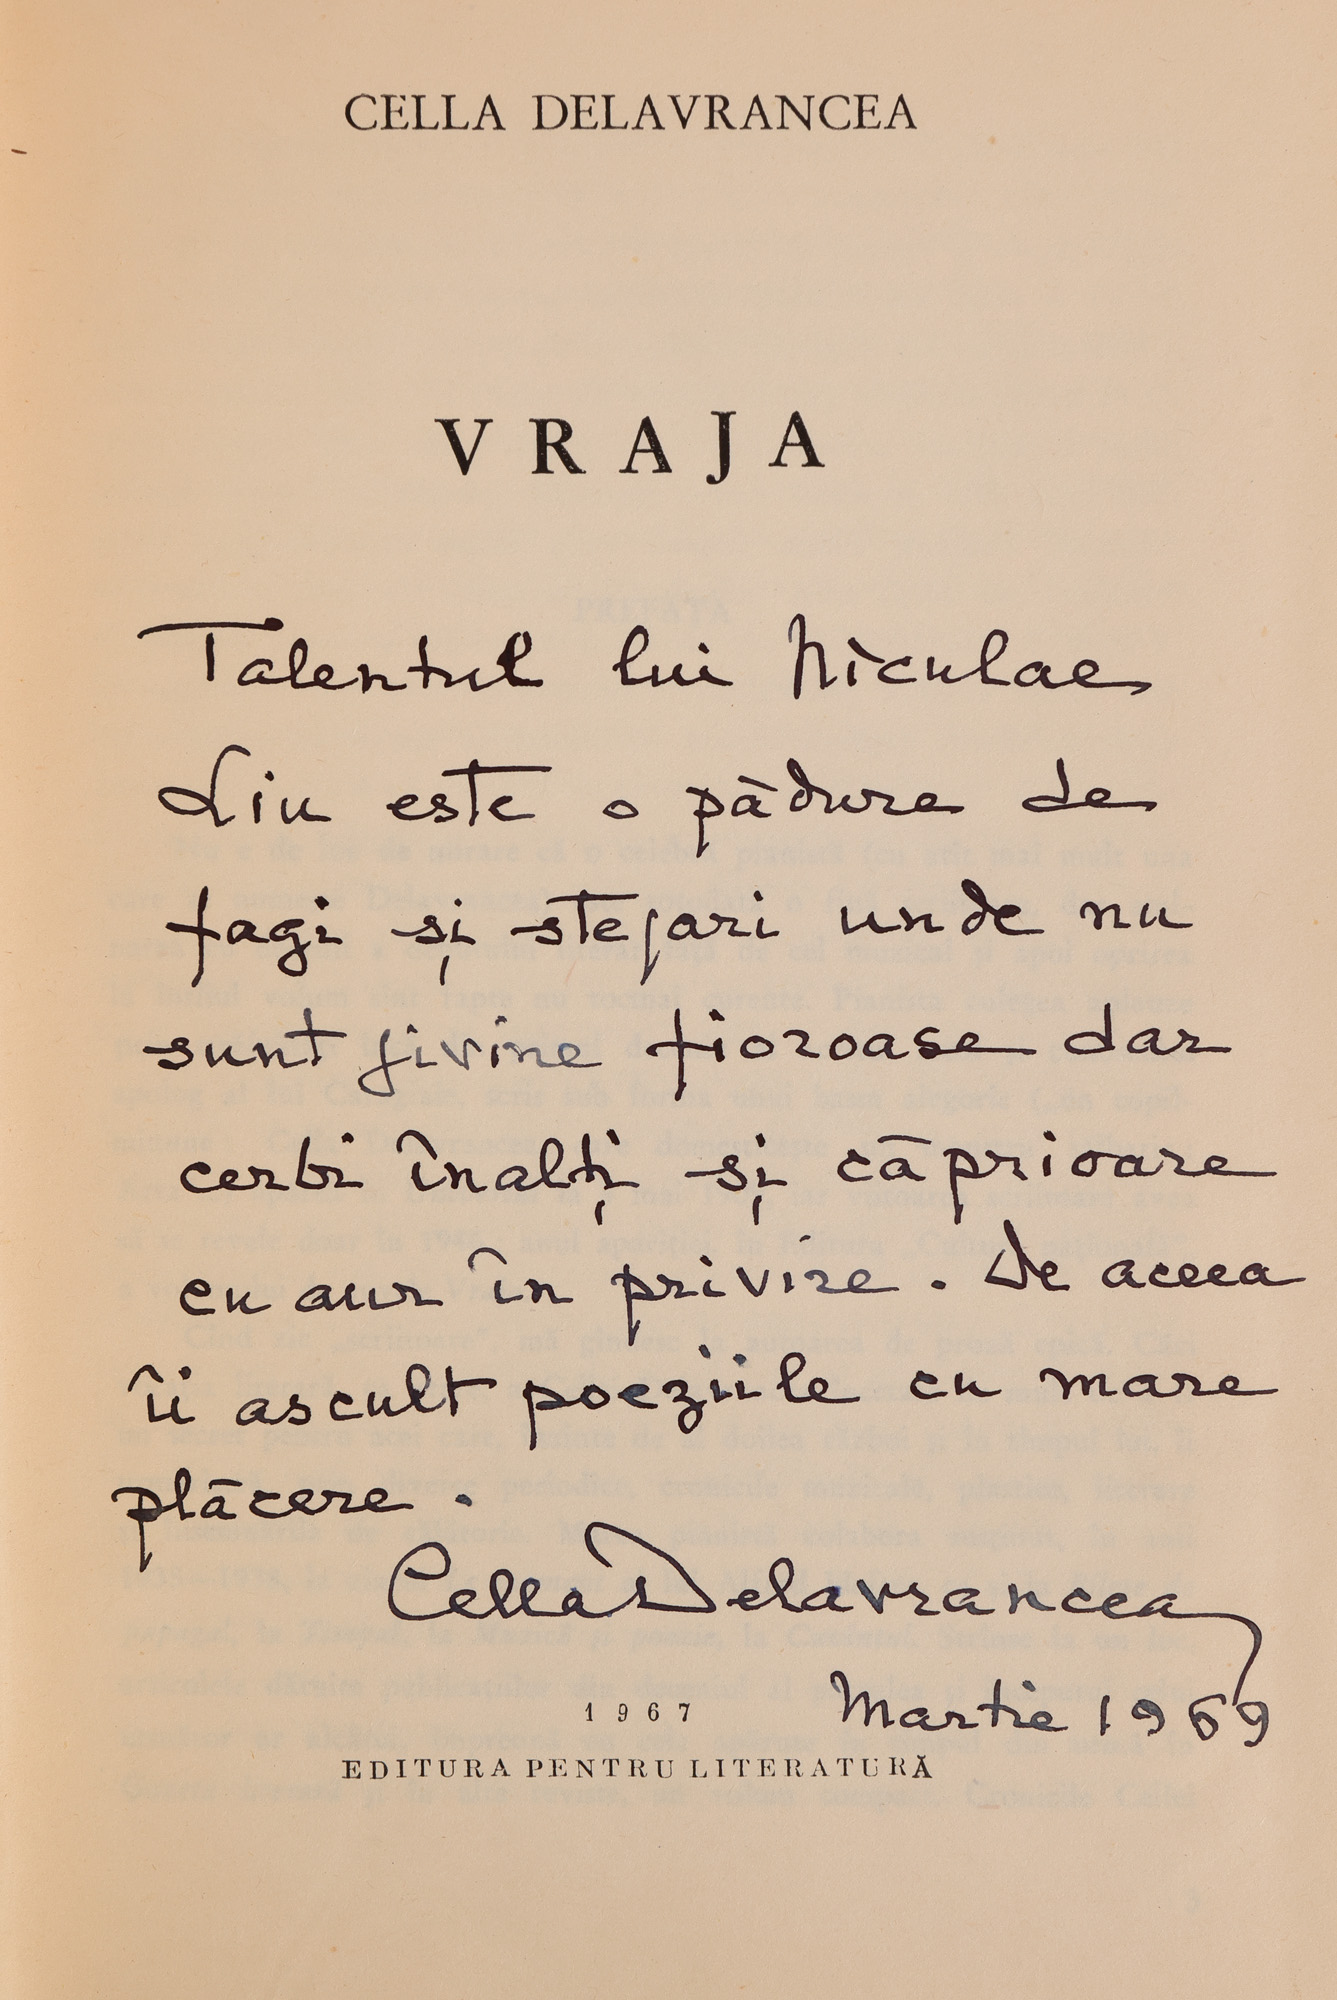 CELLA DELAVRANCEA
VRAJA
Talentul lui Niculae
Liu este o pădure de
fagi și stejari unde nu
sunt jivine fioroase dar
cerbi înalți și căprioare
cu aur în privire. De aceea
îi ascult poeziile cu mare
plăcere.
Cella Delavrancea
Martie 1969
1967
EDITURA PENTRU LITERATURĂ